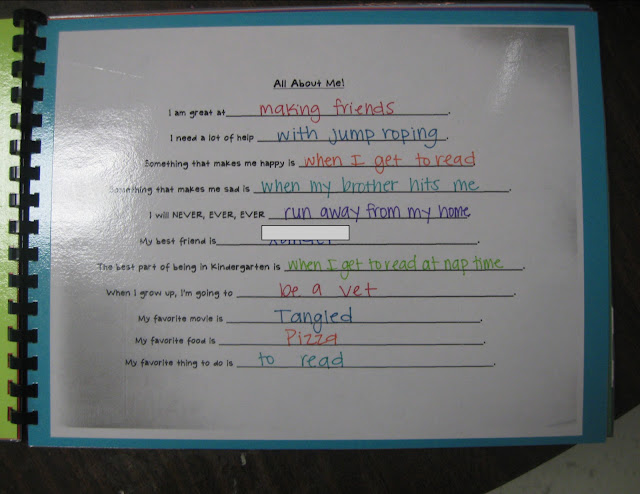 All About Me!
I am great at making friends.
I need a lot of help with jump roping.
Something that makes me happy is when I get to read
Something that makes me sad is when my brother hits me.
I will NEVER, EVER, EVER run away from my home
My best friend is.
The best part of being in Kindergarten is when I get to read at nap time.
When I grow up, I'm going to be a vet.
My favorite movie is Tangled.
My favorite food is Pizza.
My favorite thing to do is to read.